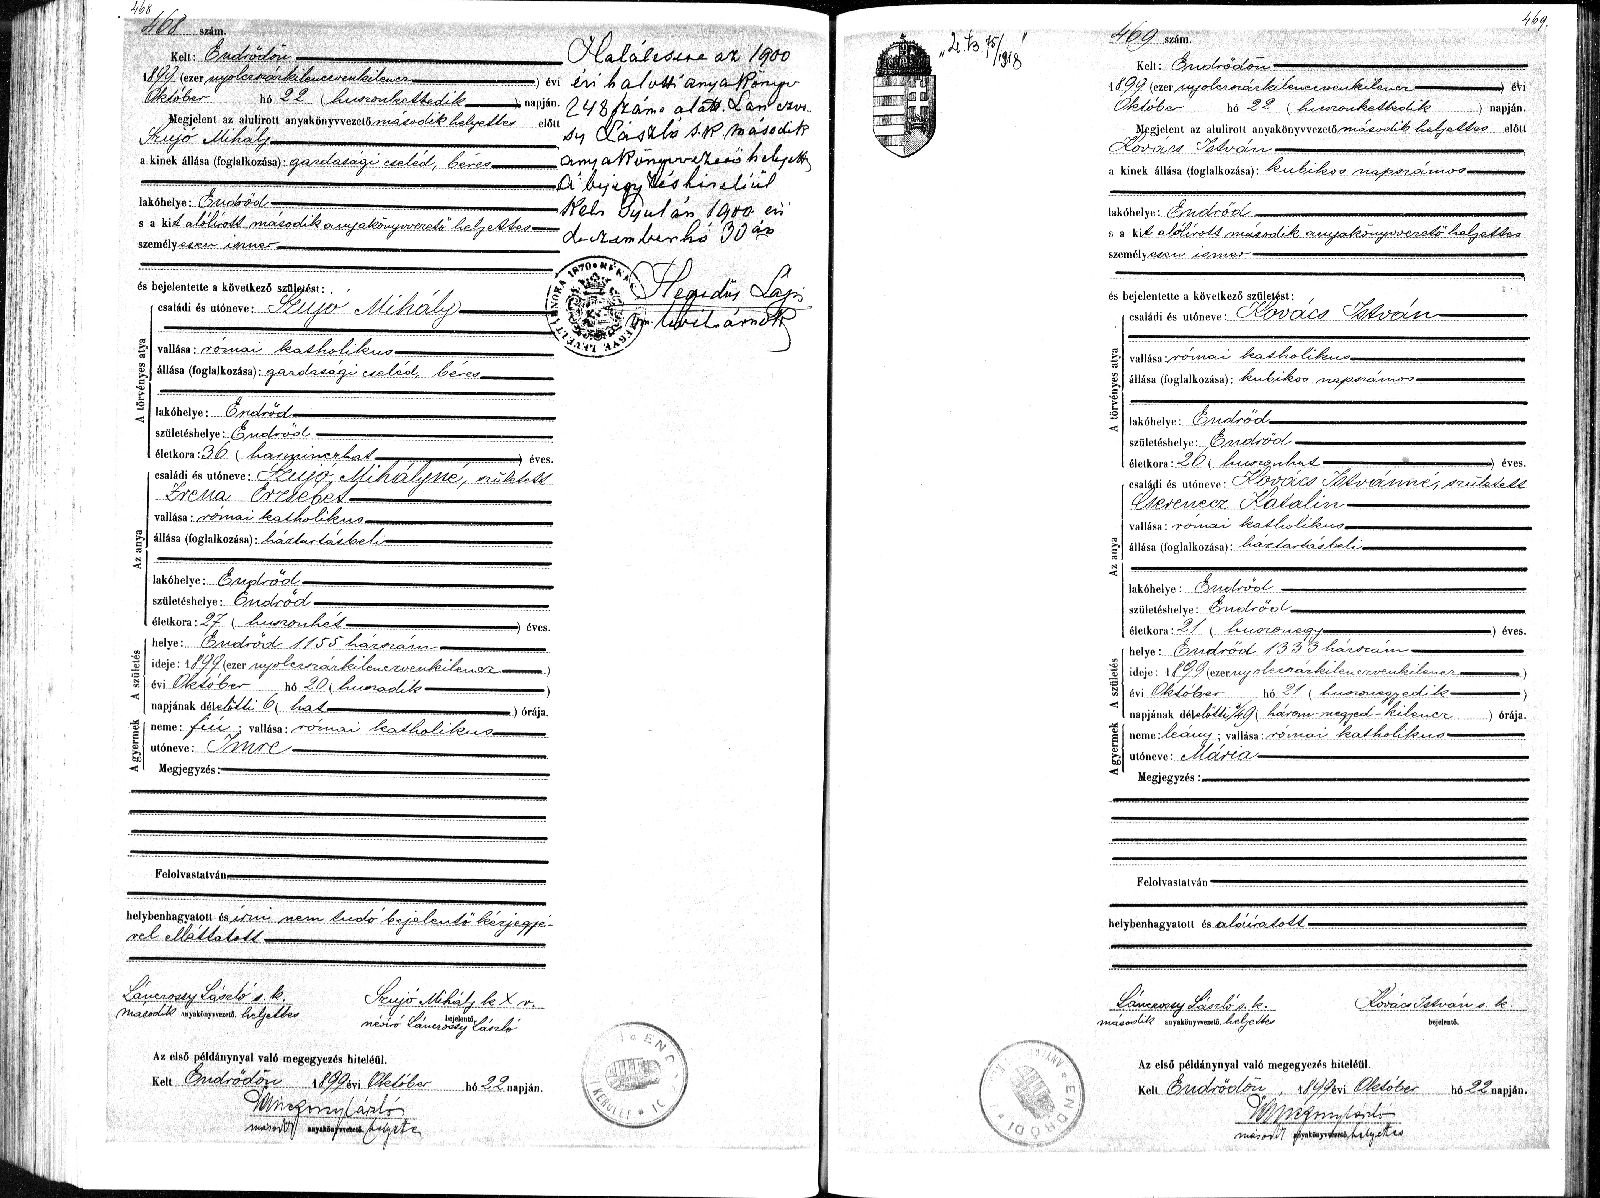 468
468 szám.
Kelt: Endrődön
1899 (ezer nyolczszázkilenczvenkilencz ) évi
Október hó 22 ( huszonkettedik ) napján.
Megjelent az alulirott anyakönyvvezető második helyettes előtt
Szujó Mihály
a kinek állása (foglalkozása): gazdasági cseléd, béres
lakóhelye: Endrőd
s a kit alólírott második anyakönyvvezető helyettes
személyesen ismer
és bejelentette a következő születést:
A törvényes atya
családi és utóneve: Szujó Mihály
vallása: római katholikus
állása (foglalkozása): gazdasági cseléd, béres
lakóhelye: Endrőd
születéshelye: Endrőd
életkora: 36 ( harminczhat ) éves.
Az anya
családi és utóneve: Szujó Mihályné, született
Erzsébet
vallása: római katholikus
állása (foglalkozása): háztartásbeli
lakóhelye: Endrőd
születéshelye: Endrőd
életkora: 27 ( huszonhét ) éves.
A születés
helye: Endrőd 1155 házszám
ideje: 1899 (ezer nyolczszázkilenczvenkilencz )
évi Október hó 20 ( huszadik )
napjának délelőtti 6 ( hat ) órája.
A gyermek
neme: fiú; vallása: római katholikus
utóneve: Imre
Megjegyzés:
Felolvastatván
helybenhagyatott és írni nem tudó bejelentő kézjegyé-
vel elláttatott
Lánczossy László s. k.
második anyakönyvvezető helyettes
Szujó Mihály k X v.
bejelentő.
névíró Lánczossy László
Az első példánynyal való megegyezés hiteléül.
Kelt Endrődön 1899 évi Október hó 22 napján.
második anyakönyvvezető helyettes
Halálesete az 1900
évi halotti anyakönyv
248 szám alatt. Lánczos-
sy László s.k. második
anyakönyvvezető helyett.
A bejegyzés hiteléül
Kelt Gyulán 1900 évi
deczember hó 30 án
Hegedűs Lajos
vm. levéltárnok
469.
469 szám.
Kelt: Endrődön
1899 (ezer nyolczszázkilenczvenkilencz ) évi
Október hó 22 ( huszonkettedik ) napján.
Megjelent az alulirott anyakönyvvezető második helyettes előtt
Kovács István
a kinek állása (foglalkozása): kubikos napszámos
lakóhelye: Endrőd
s a kit alólírott második anyakönyvvezető helyettes
személyesen ismer
és bejelentette a következő születést:
A törvényes atya
családi és utóneve: Kovács István
vallása: római katholikus
állása (foglalkozása): kubikos napszámos
lakóhelye: Endrőd
születéshelye: Endrőd
életkora: 26 ( huszonhat ) éves.
Az anya
családi és utóneve: Kovács Istvánné, született
Katalin
vallása: római katholikus
állása (foglalkozása): háztartásbeli
lakóhelye: Endrőd
születéshelye: Endrőd
életkora: 21 ( huszonegy ) éves.
A születés
helye: Endrőd 1333 házszám
ideje: 1899 (ezer nyolczszázkilenczvenkilencz )
évi Október hó 21 ( huszonegyedik )
napjának délelőtti ¾9 ( három-negyed-kilencz ) órája.
A gyermek
neme: leány; vallása: római katholikus
utóneve: Mária
Megjegyzés:
Felolvastatván
helybenhagyatott és aláíratott
Lánczossy László s. k.
második anyakönyvvezető helyettes
Kovács István s. k.
bejelentő.
Az első példánynyal való megegyezés hiteléül.
Kelt Endrődön, 1899 évi Október hó 22 napján.
második anyakönyvvezető helyettes